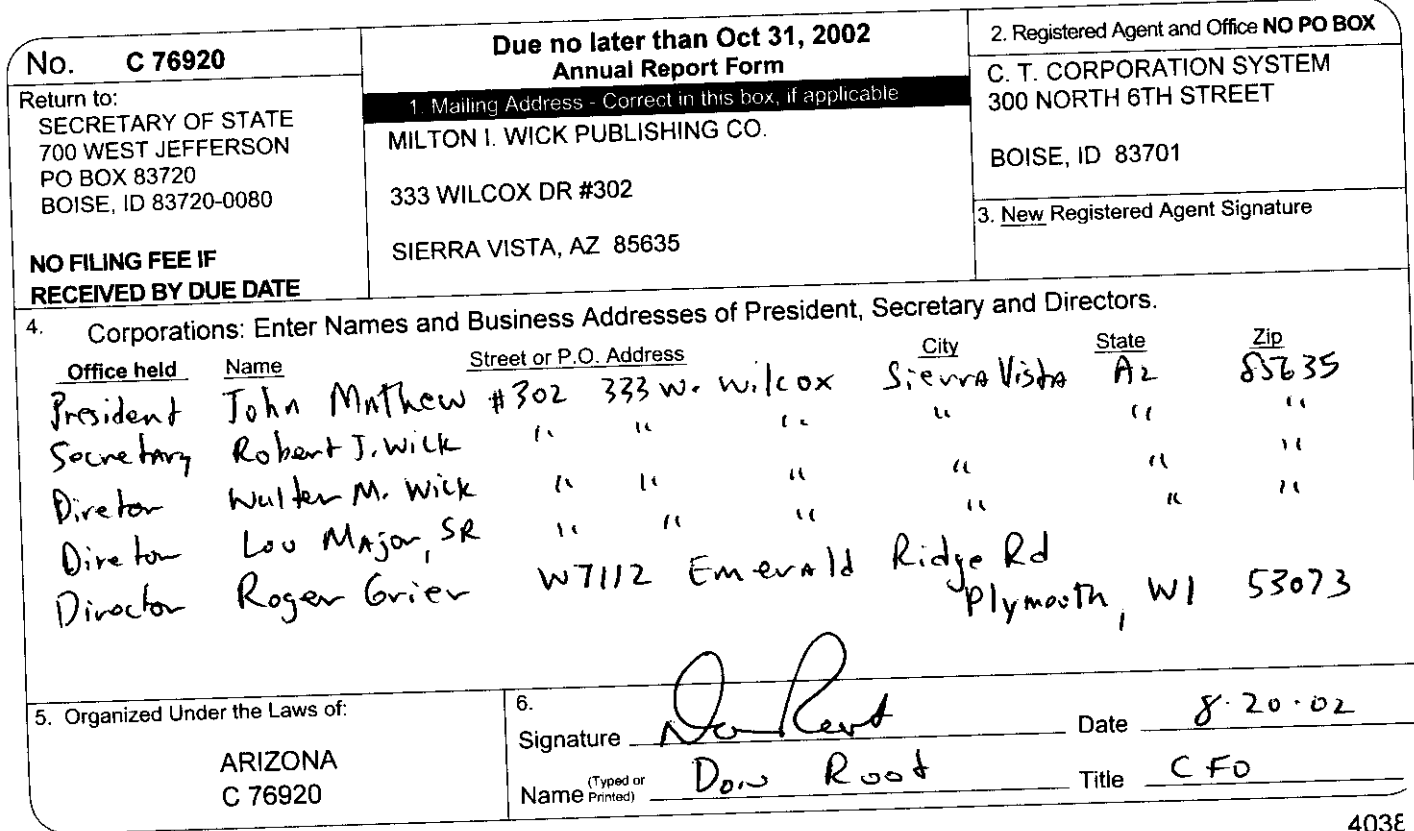 No. C 76920
Return to:
SECRETARY OF STATE
700 WEST JEFFERSON
PO BOX 83720
BOISE, ID 83720-0080
NO FILING FEE IF
RECEIVED BY DUE DATE
Due no later than Oct 31, 2002
Annual Report Form
1. Mailing Address - Correct in this box, if applicable
MILTON I. WICK PUBLISHING CO.
333 WILCOX DR #302
SIERRA VISTA, AZ 85635
2. Registered Agent and Office NO PO BOX
C. T. CORPORATION SYSTEM
300 NORTH 6TH STREET
BOISE, ID 83701
3. New Registered Agent Signature
4. Corporations: Enter Names and Business Addresses of President, Secretary and Directors.
Office held Name Street or P.O. Address City State Zip
President John Mathew #302 333 W. Wilcox Sierra Vista Az 85635
Secretary Robert J. Wick " " " " " "
Diretor Walter M. Wick " " " " " "
Diretor Lou Major, SR " " " " " "
Director Roger Grier W7112 Emerald Ridge Rd
Plymouth, WI 53073
5. Organized Under the Laws of:
ARIZONA
C 76920
6.
Signature Don Root Date 8·20·02
Name (Typed or Printed) Don Root Title CFO
4038